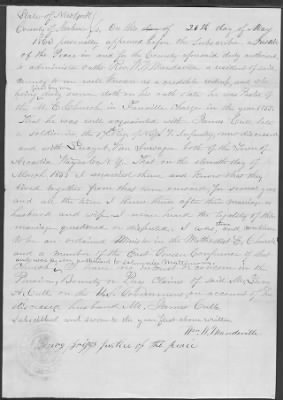 State of New York
County of
On this day of 26th day of May
1863 personally appeared before the Subscriber a Justice
of the Peace in and for the County aforesaid duly authorized
to administer oaths Rev. W. W. Mandeville a resident of said
county to me well known as a credible
being first by me duly sworn doth on his oath state he was Pastor of
the M. E. Church in Fairville Charge in the year
That he was well acquainted with James Cull late
a soldier in the Regt N. Y. Infantry now deceased
and with both of the Town of
Arcadia Wayne Co. N. Y. That on the eleventh day of
March 1856 I married them and know that they
lived together from that time onward for several years
and all the time I knew them after their marriage as
husband and wife & never heard the legality of the
marriage questioned or disputed. I was then and continue
to be an ordained Minister in the Methodist E. Church
and a member of the East Genesee Conference of that
and was as such authorized to solemnize marriages
I have no interest or concern in the
Pension, Bounty or Pay Claims of said Mrs.
A. Cull on the U. S. Government on account of the
deceased her husband Mr. James Cull
Subscribed and sworn to the year first above written
Wm. W. Mandeville
justice of the peace